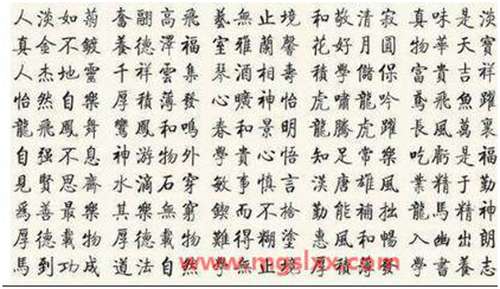 人淡如菊 奮翮高飛 藝無止境 和敬清寂 真味是淡
真金不鍍 養德澤福 室雅蘭馨 花好月圓 物華天寶
人杰地靈 千祥雲集 酒相壽 積學儲 富貴吉祥
怡然自樂 厚積薄發 心曠神怡 虎嘯龍吟 鳶飛魚躍
龍飛鳳舞 鸞鳳和鳴 春和景明 龍騰虎躍 長風萬裏
自强不息 神游物外 和貴心悟 知足常樂 吃虧是福
見賢思齊 水滴石穿 敏事慎言 漢唐雄風 業精于勤
為善最樂 其樂無窮 鍥而不捨 勤能補拙 龍馬精神
厚德載物 難得糊塗 惠風和暢 入幽出朗
馬到功成 道法自然 學無止境 厚積薄發 學書養志
www.mgslxx.com